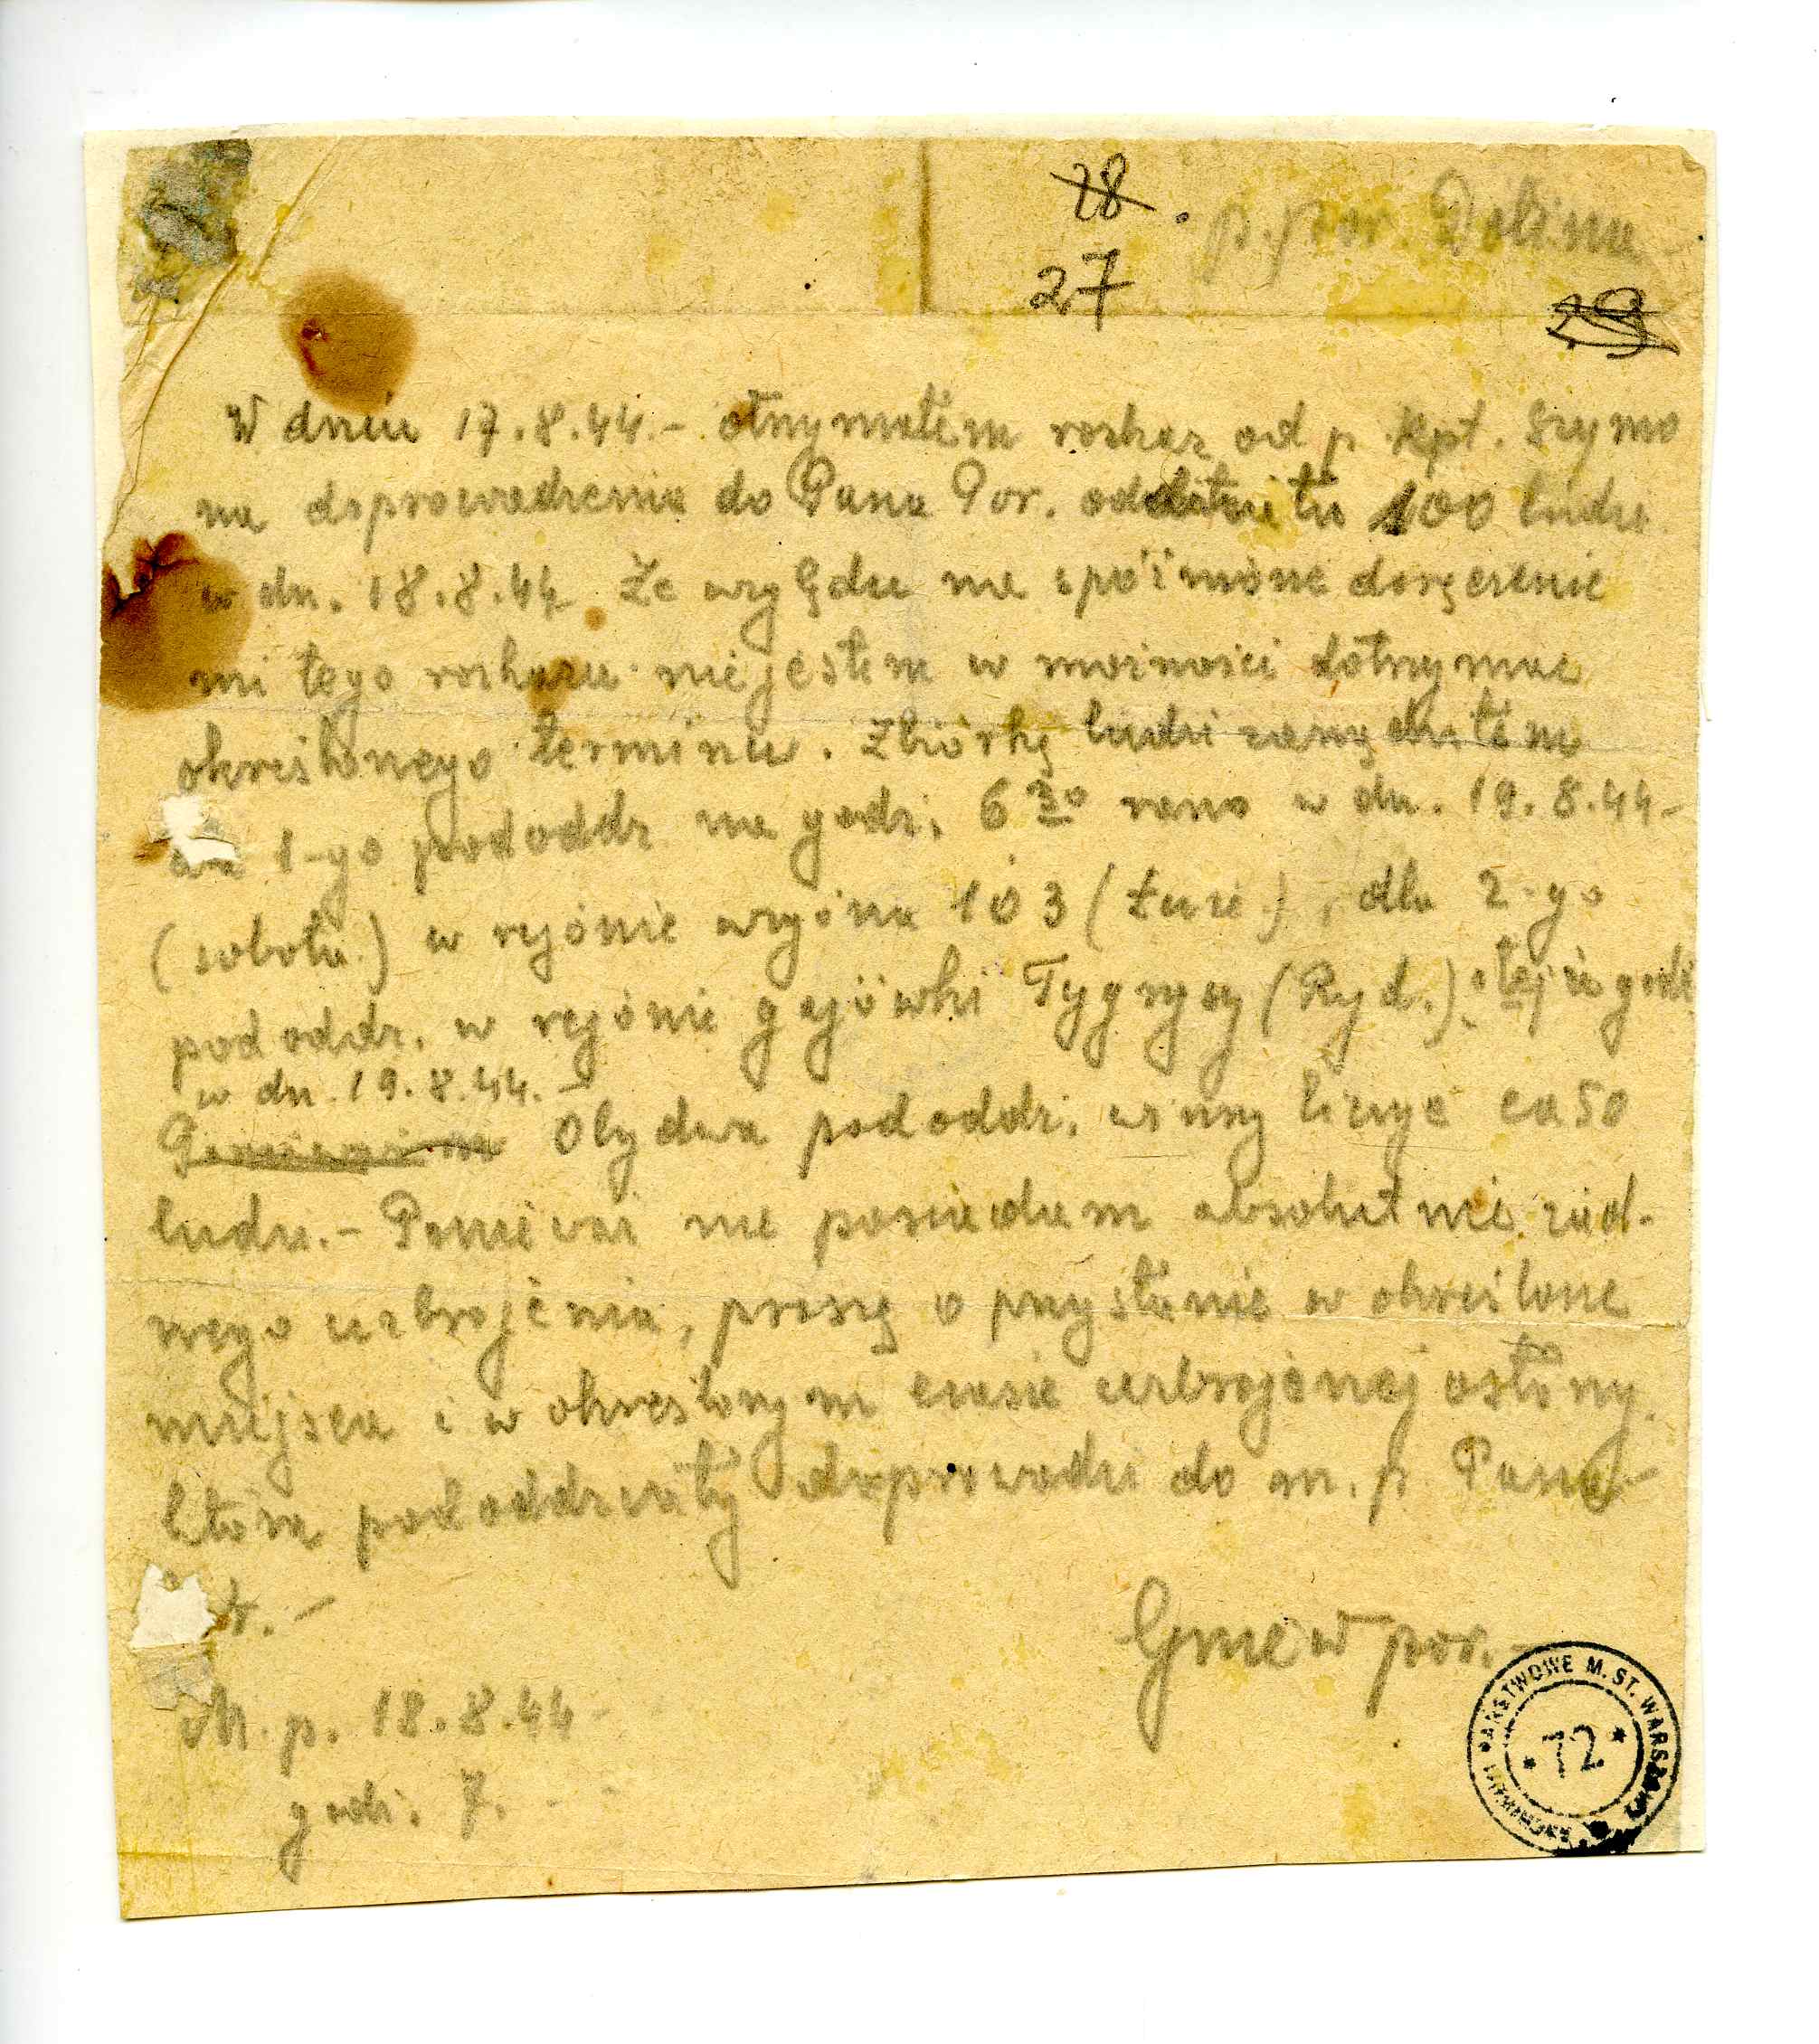 28.
p. por. Dolina
27
29
W dniu 17.8.44.- otrzymałem rozkaz od p. Kpt. Szymo
na doprowadzenia do Pana Por. oddziału 100 ludzi
w dn. 18.8.44. Ze względu na spóźnione doręczenie
mi tego rozkazu nie jestem w możności dotrzymać
określonego terminu. Zbiórkę ludzi zarządziłem
dla 1-go pododdz na godz. 6 30 rano w dn. 19.8.44-
(sobota) w rejonie wzgórza 103 (Łuże.), dla 2-go
pododdz. w rejonie gajówki Tygrysy (Ryd.) o tejże godz.
w dn. 19.8.44.-
Ponieważ Obydwa pododdz. winny liczyć ca 50
ludzi.- Ponieważ nie posiadam absolutnie żad-
nego uzbrojenia, proszę o przysłanie w określone
miejsca i w określonym czasie uzbrojonej osłony,
która pododdziały doprowadzi do m.p. Pana
r.-
Gniew por.-
M.p. 18.8.44-
godz. 7.-
ARCHIWUM PAŃSTWOWE M. ST. WARSZAWY
* 72 *